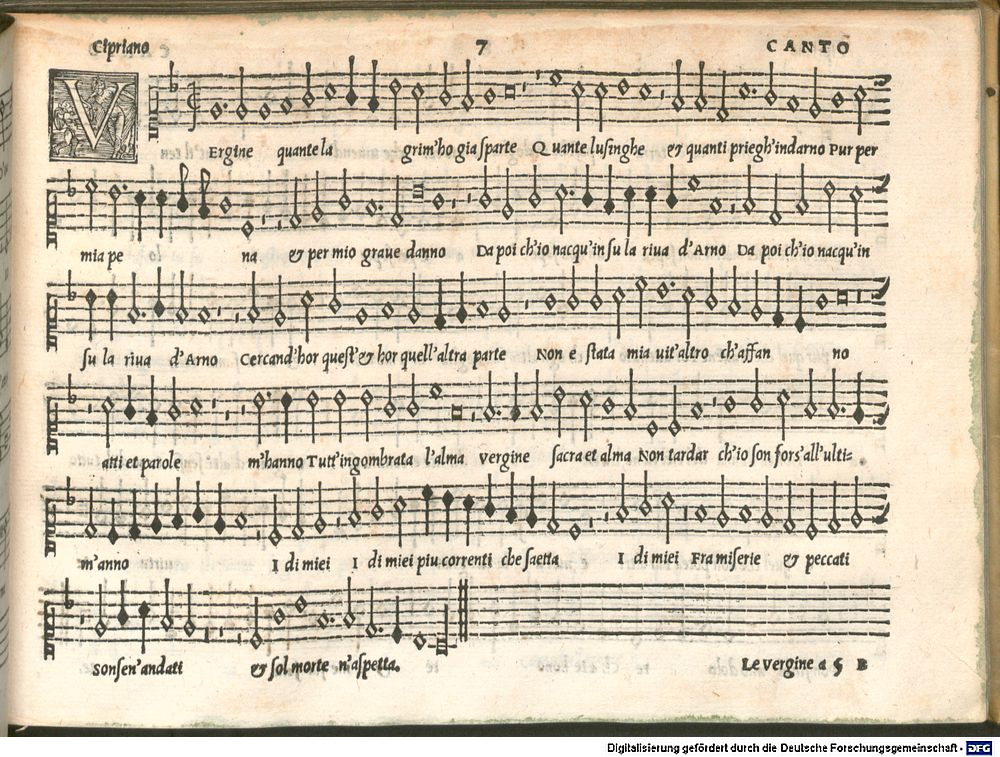 Cipriano 7 CANTO
VErgine quante la grim'ho gia sparte Quante lusinghe & quanti priegh'indarno Pur per
mia pe na & per mio graue danno Da poi ch'io nacqu'in su la riua d'Arno Da poi ch'io nacqu'in
su la riua d'Arno Cercand'hor quest'& hor quell'altra parte Non è stata mia uit'altro ch'affan no
atti et parole m'hanno Tutt'ingombrata l'alma vergine sacra et alma Non tardar ch'io son fors'all'ulti-
m'anno I di miei I di miei piu correnti che saetta I di miei Fra miserie & peccati
sonsen'andati & sol morte n'aspetta.
Le vergine a 5 B
Digitalisierung gefördert durch die Deutsche Forschungsgemeinschaft - DFG